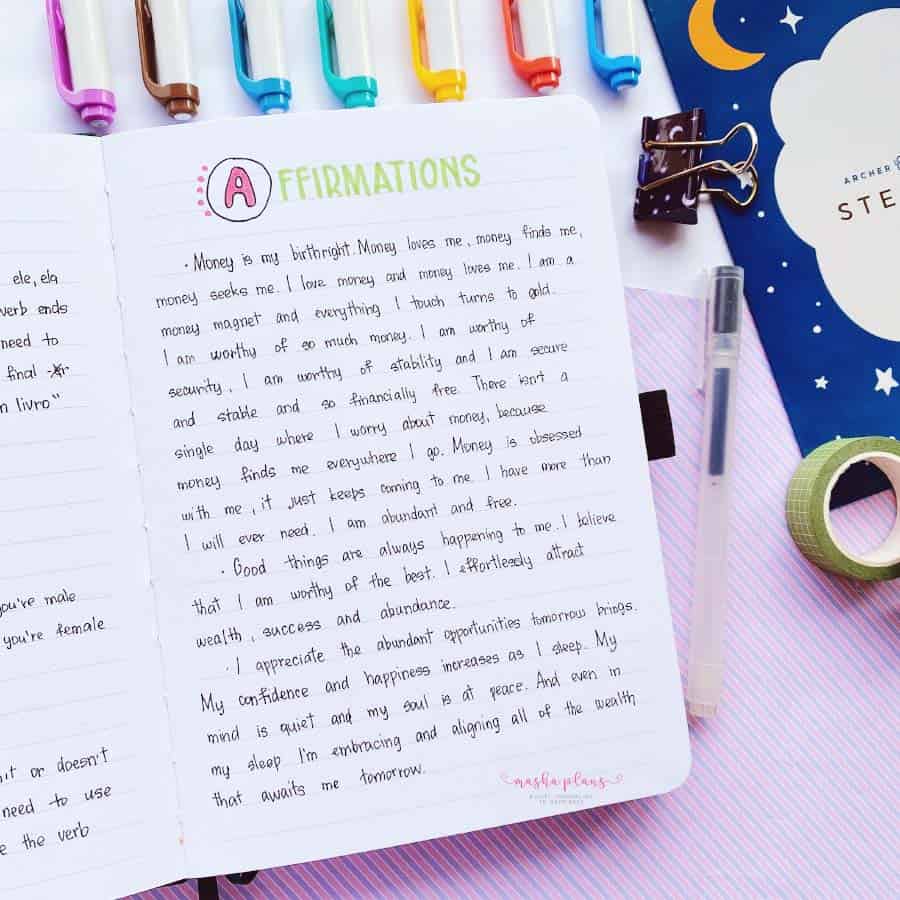 ele, ela
verb ends
need to
final -r
n livro"
you're male
you're female
it or doesn't
need to use
the verb
AFFIRMATIONS
· Money is my birthright. Money loves me, money finds me,
money seeks me. I love money and money loves me. I am a
money magnet and everything I touch turns to gold.
I am worthy of so much money. I am worthy of
security, I am worthy of stability and I am secure
and stable and so financially free. There isn't a
single day where I worry about money, because
money finds me everywhere I go. Money is obsessed
with me, it just keeps coming to me. I have more than
I will ever need. I am abundant and free.
· Good things are always happening to me. I believe
that I am worthy of the best. I effortlessly attract
wealth, success and abundance.
· I appreciate the abundant opportunities tomorrow brings.
My confidence and happiness increases as I sleep. My
mind is quiet and my soul is at peace. And even in
my sleep I'm embracing and aligning all of the wealth
that awaits me tomorrow.
masha plans
ARCHER
STE